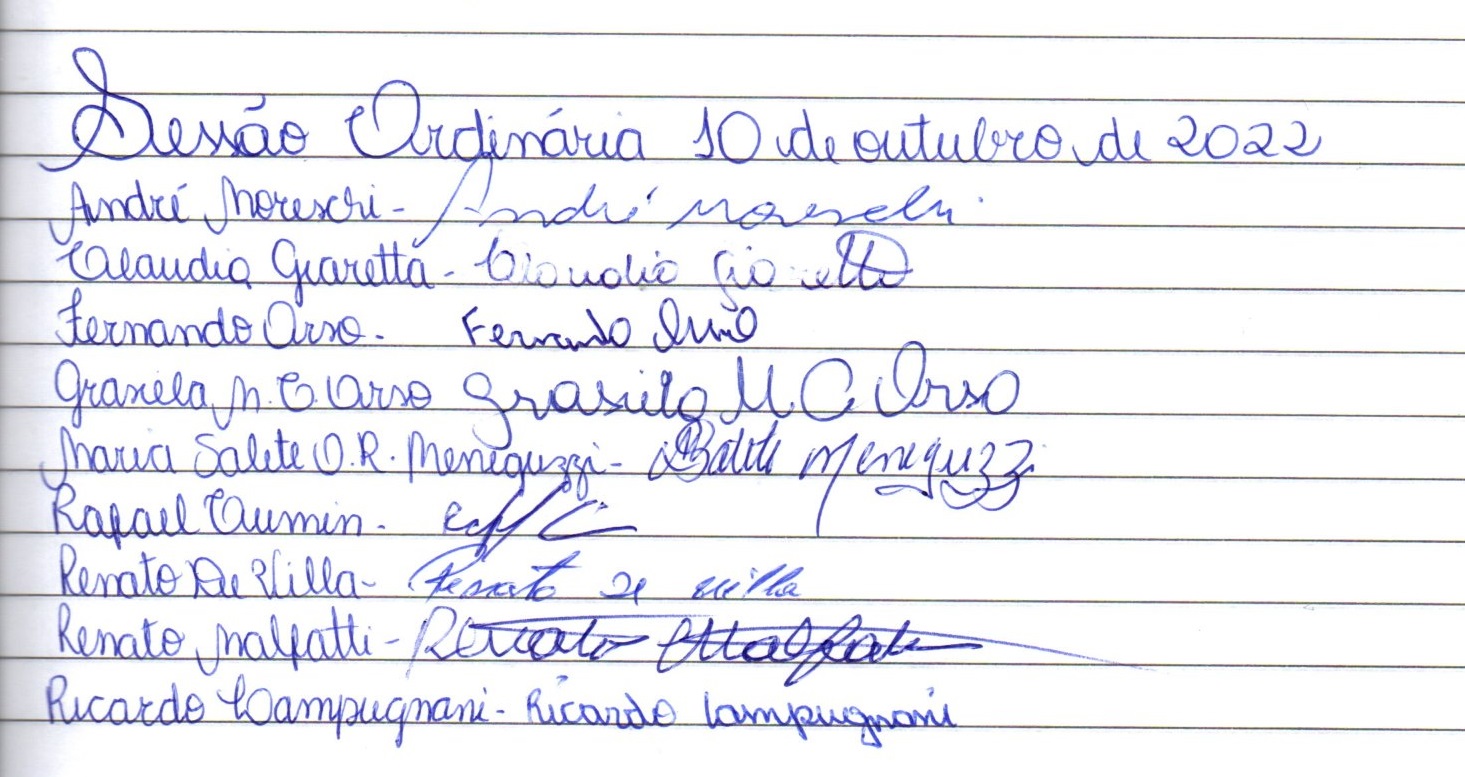 Sessão Ordinária 10 de outubro de 2022
André Moreschi - André Moreschi
Claudia Giaretta - Claudia Giaretta
Fernando Orso - Fernando Orso
Grasiela M. C. Orso Grasiela M C Orso
Maria Salete O. R. Meneguzzi - Salete Meneguzzi
Rafael Cumin -
Renato De Villa - Renato De Villa
Renato Malfatti - Renato Malfatti
Ricardo Campugnani - Ricardo Campugnani